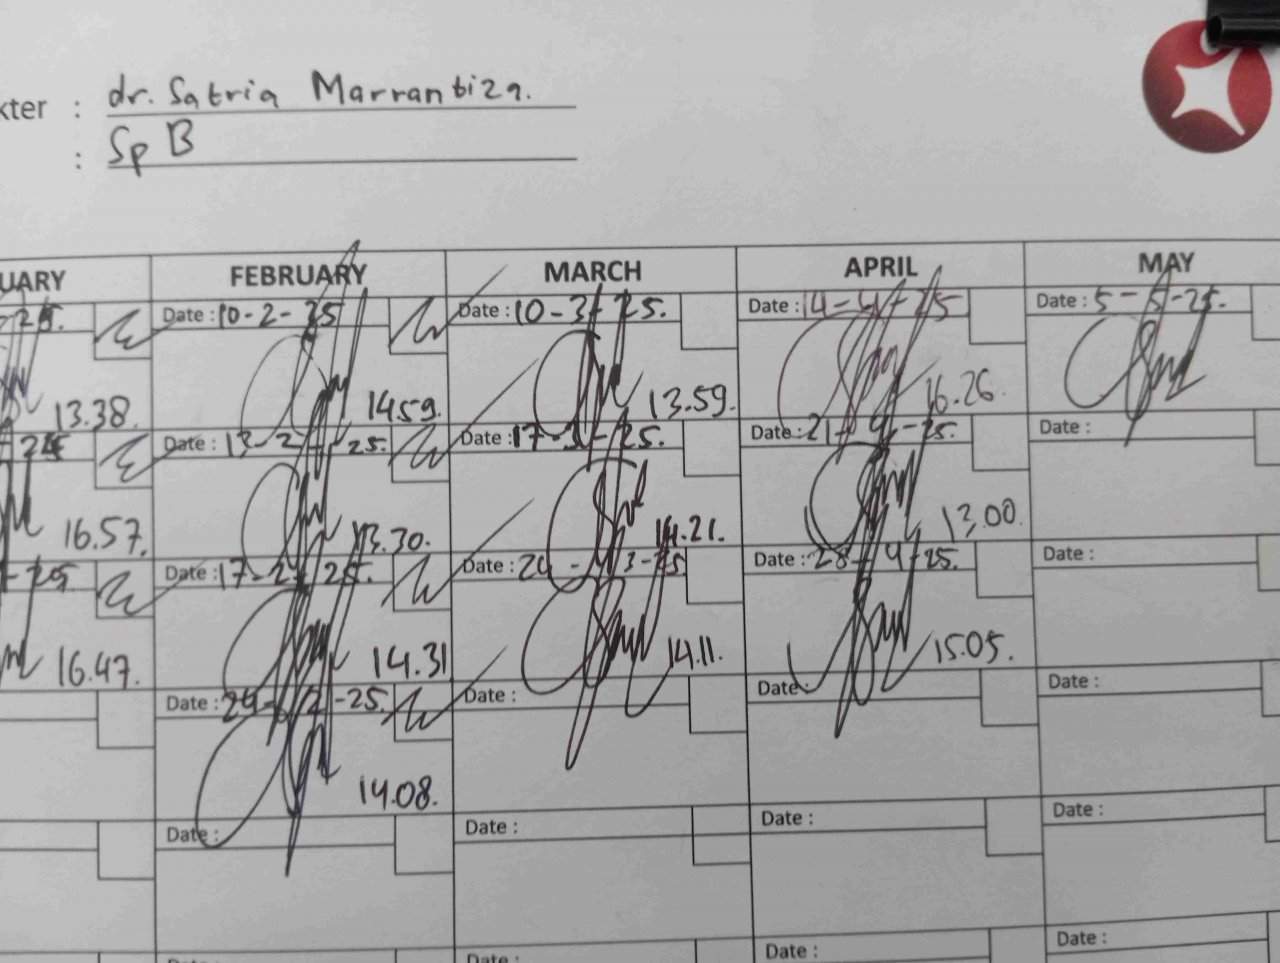 kter : dr. Satria Marrantiza.
: Sp B
UARY FEBRUARY MARCH APRIL MAY
25. Date : 10-2-25 Date : 10-3-25. Date : 14-4-25 Date : 5-5-25.
13.38. 14.59. 13.59. 16.26.
Date : 13-2-25. Date : 17-3-25. Date : 21-4-25. Date :
16.57. 13.30. 14.21. 13.00.
Date : 17-2-25. Date : 24-3-25 Date : 28-4-25. Date :
16.47. 14.31 14.11. 15.05.
Date : 24-2-25. Date : Date : Date :
14.08.
Date : Date : Date : Date :
Date : Date : Date : Date :